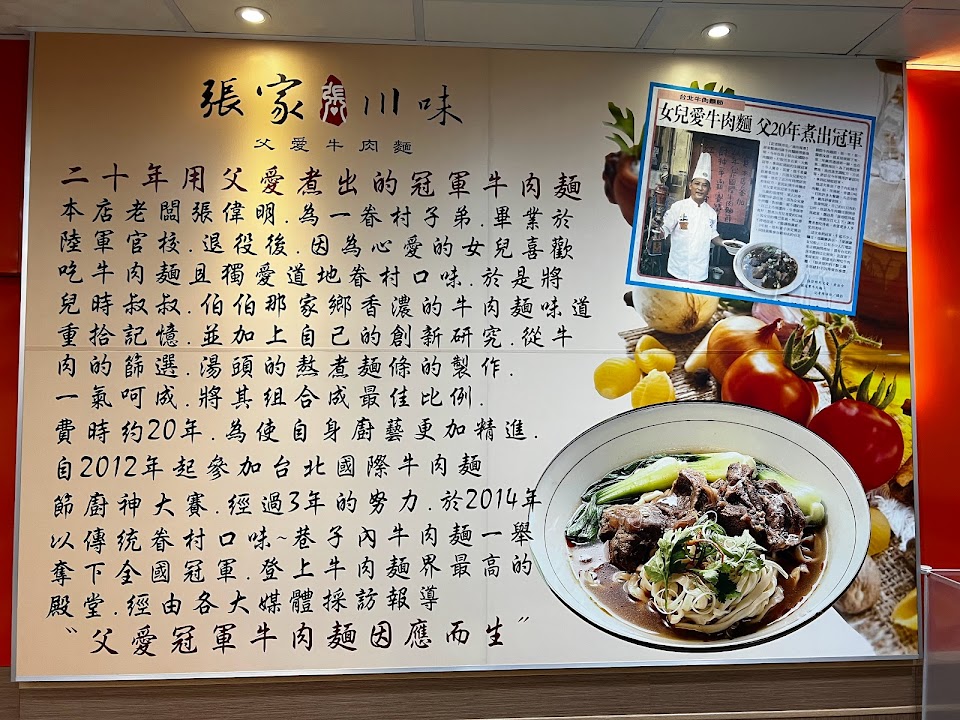 張家 張 川味
父愛牛肉麵
二十年用父愛煮出的冠軍牛肉麵
本店老闆張偉明.為一眷村子弟.畢業於
陸軍官校.退役後.因為心愛的女兒喜歡
吃牛肉麵且獨愛道地眷村口味.於是將
兒時叔叔.伯伯那家鄉香濃的牛肉麵味道
重拾記憶.並加上自己的創新研究.從牛
肉的篩選.湯頭的熬煮麵條的製作.
一氣呵成.將其組合成最佳比例.
費時約20年.為使自身廚藝更加精進.
自2012年起參加台北國際牛肉麵
節廚神大賽.經過3年的努力.於2014年
以傳統眷村口味~巷子內牛肉麵一舉
奪下全國冠軍.登上牛肉麵界最高的
殿堂.經由各大媒體採訪報導
〝父愛冠軍牛肉麵因應而生〞
台北牛肉麵節
女兒愛牛肉麵 父20年煮出冠軍